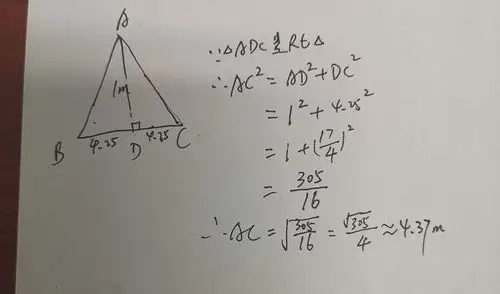 A
1m
B
4.25
D
4.25
C
∵△ADC是Rt△
∴AC²=AD²+DC²
=1²+4.25²
=1+(17/4)²
=305/16
∴AC=√305/16=√305/4≈4.37m